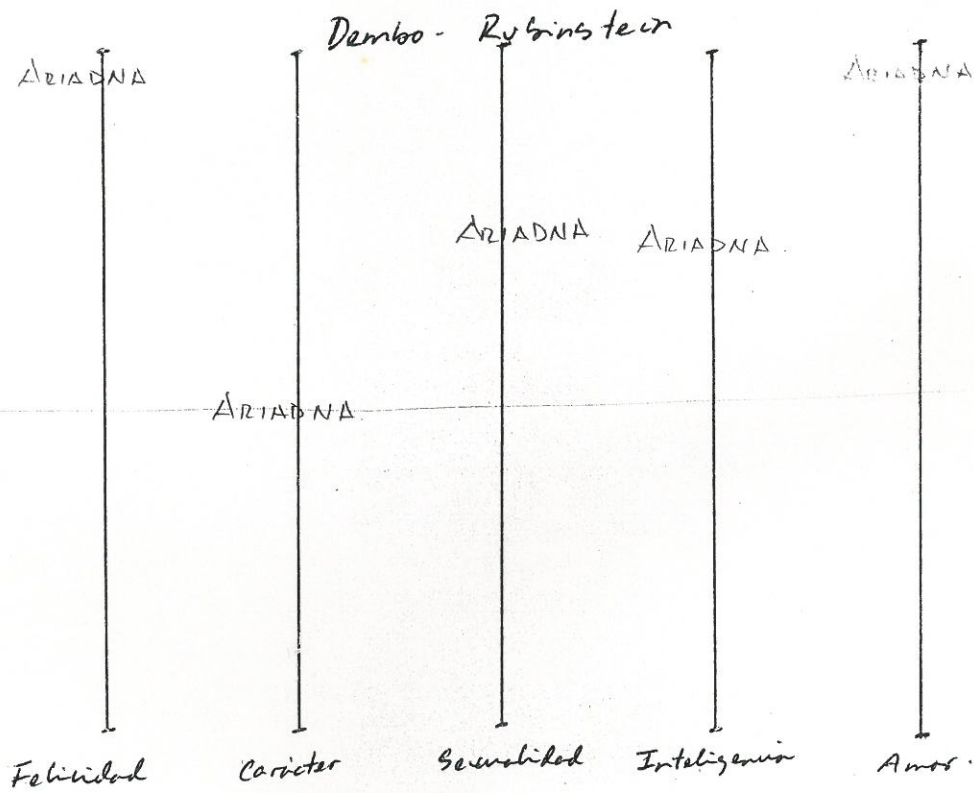 Dembo - Rubinstein
ARIADNA
ARIADNA
ARIADNA
ARIADNA
ARIADNA
Felicidad Carácter Sexualidad Inteligencia Amor.